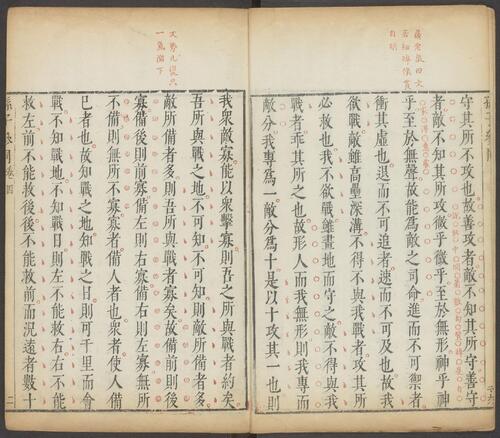 守其所不攻也故善攻者敵不知其所守善守
者敵不知其所攻微乎微乎至於無形神乎神
乎至於無聲故能為敵之司命進而不可禦者
衝其虛也退而不可追者速而不可及也故我
欲戰敵雖高壘深溝不得不與我戰者攻其所
必救也我不欲戰雖畫地而守之敵不得與我
戰者乖其所之也故形人而我無形則我專而
敵分我專爲一敵分爲十是以十攻其一也則
一氣瀉下
我衆敵寡能以衆擊寡則吾之所與戰者約矣
吾所與戰之地不可知不可知則敵所備者多
敵所備者多則吾所與戰者寡矣故備前則後
寡備後則前寡備左則右寡備右則左寡無所
不備則無所不寡寡者備人者也衆者使人備
己者也故知戰之地知戰之日則可千里而會
戰不知戰地不知戰日則左不能救右右不能
救左前不能救後後不能救前而況遠者數十
孫子參同卷四
二